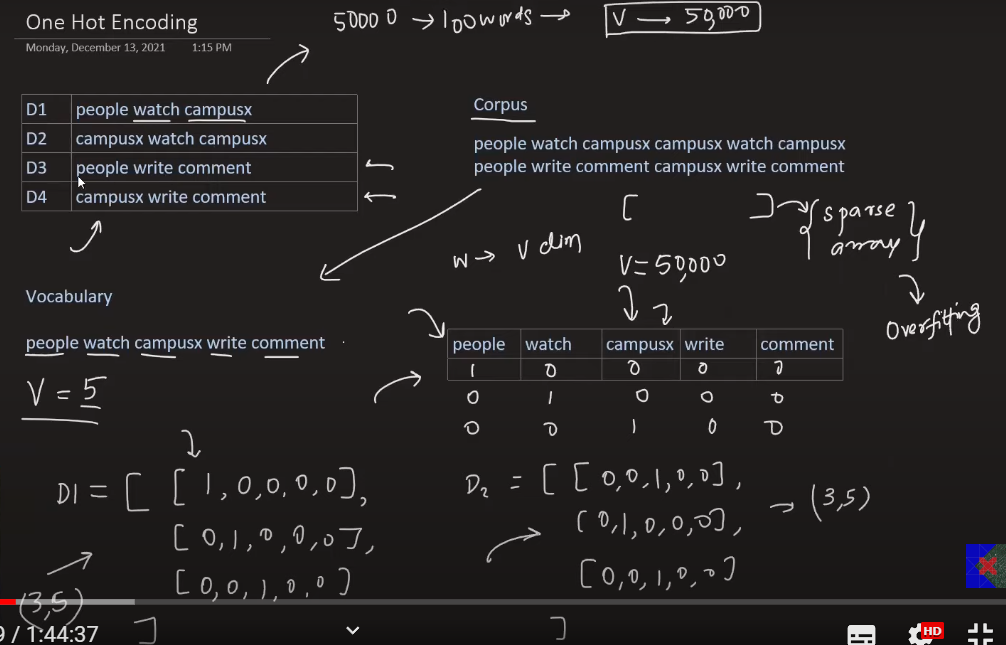 One Hot Encoding
Monday, December 13, 2021 1:15 PM
50000 → 100 words → V → 50,000
D1 people watch campusx
D2 campusx watch campusx
D3 people write comment
D4 campusx write comment
Corpus
people watch campusx campusx watch campusx
people write comment campusx write comment
[ ] → { sparse array }
W → V dim
V = 50,000
Overfitting
Vocabulary
people watch campusx write comment
V = 5
people watch campusx write comment
1 0 0 0 0
0 1 0 0 0
0 0 1 0 0
D1 = [ [ 1, 0, 0, 0, 0 ],
[ 0, 1, 0, 0, 0 ],
[ 0, 0, 1, 0, 0 ]
]
(3,5)
D2 = [ [ 0, 0, 1, 0, 0 ],
[ 0, 1, 0, 0, 0 ],
[ 0, 0, 1, 0, 0 ]
]
→ (3,5)
9 / 1:44:37
HD